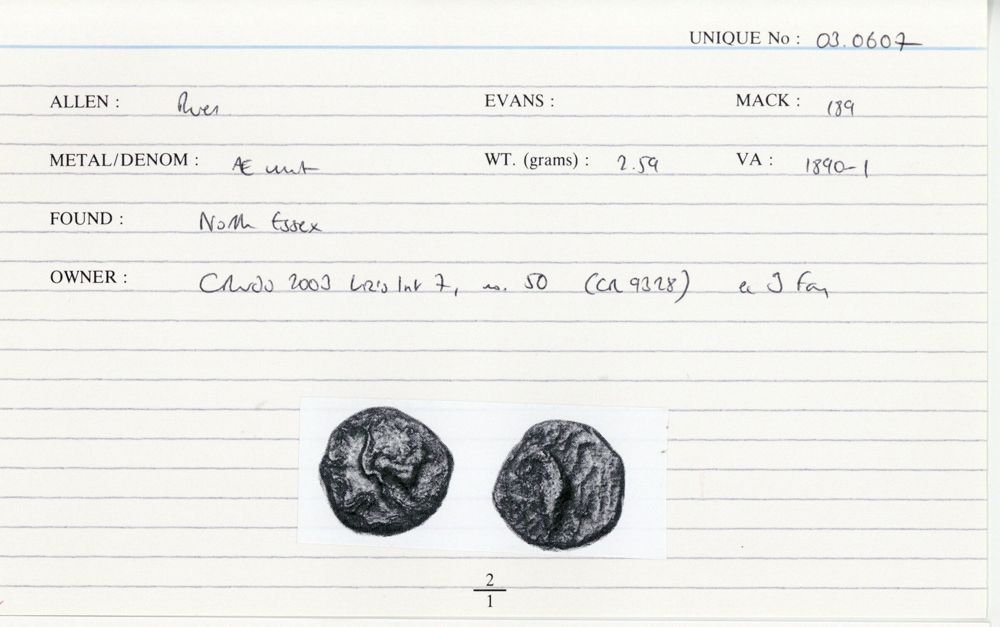 UNIQUE No : 03.0607
ALLEN : River EVANS : MACK : 189
METAL/DENOM : Æ unit WT. (grams) : 2.59 VA : 1890-1
FOUND : North Essex
OWNER : 2003 7, no. 50 (CR 9328) ex J Fay
2
1